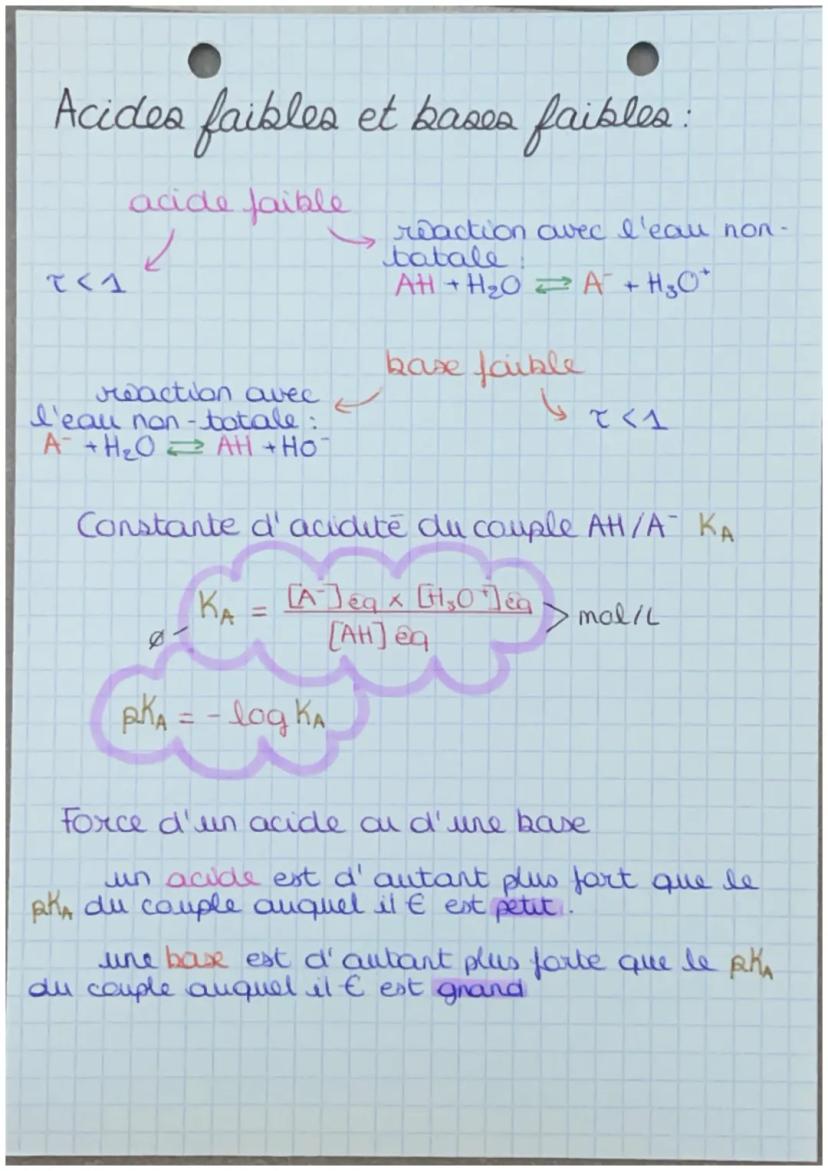 Acides faibles et bases faibles :
acide faible
τ < 1
réaction avec l'eau non-
totale :
AH + H₂O ⇄ A⁻ + H₃O⁺
base faible
réaction avec
l'eau non-totale :
A⁻ + H₂O ⇄ AH + HO⁻
τ < 1
Constante d'acidité du couple AH/A⁻ KA
KA = [A⁻]éq × [H₃O⁺]éq / [AH]éq > mol/L
ø
pKA = - log KA
Force d'un acide ou d'une base
un acide est d'autant plus fort que le
pKA du couple auquel il € est petit.
une base est d'autant plus forte que le pKA
du couple auquel il € est grand